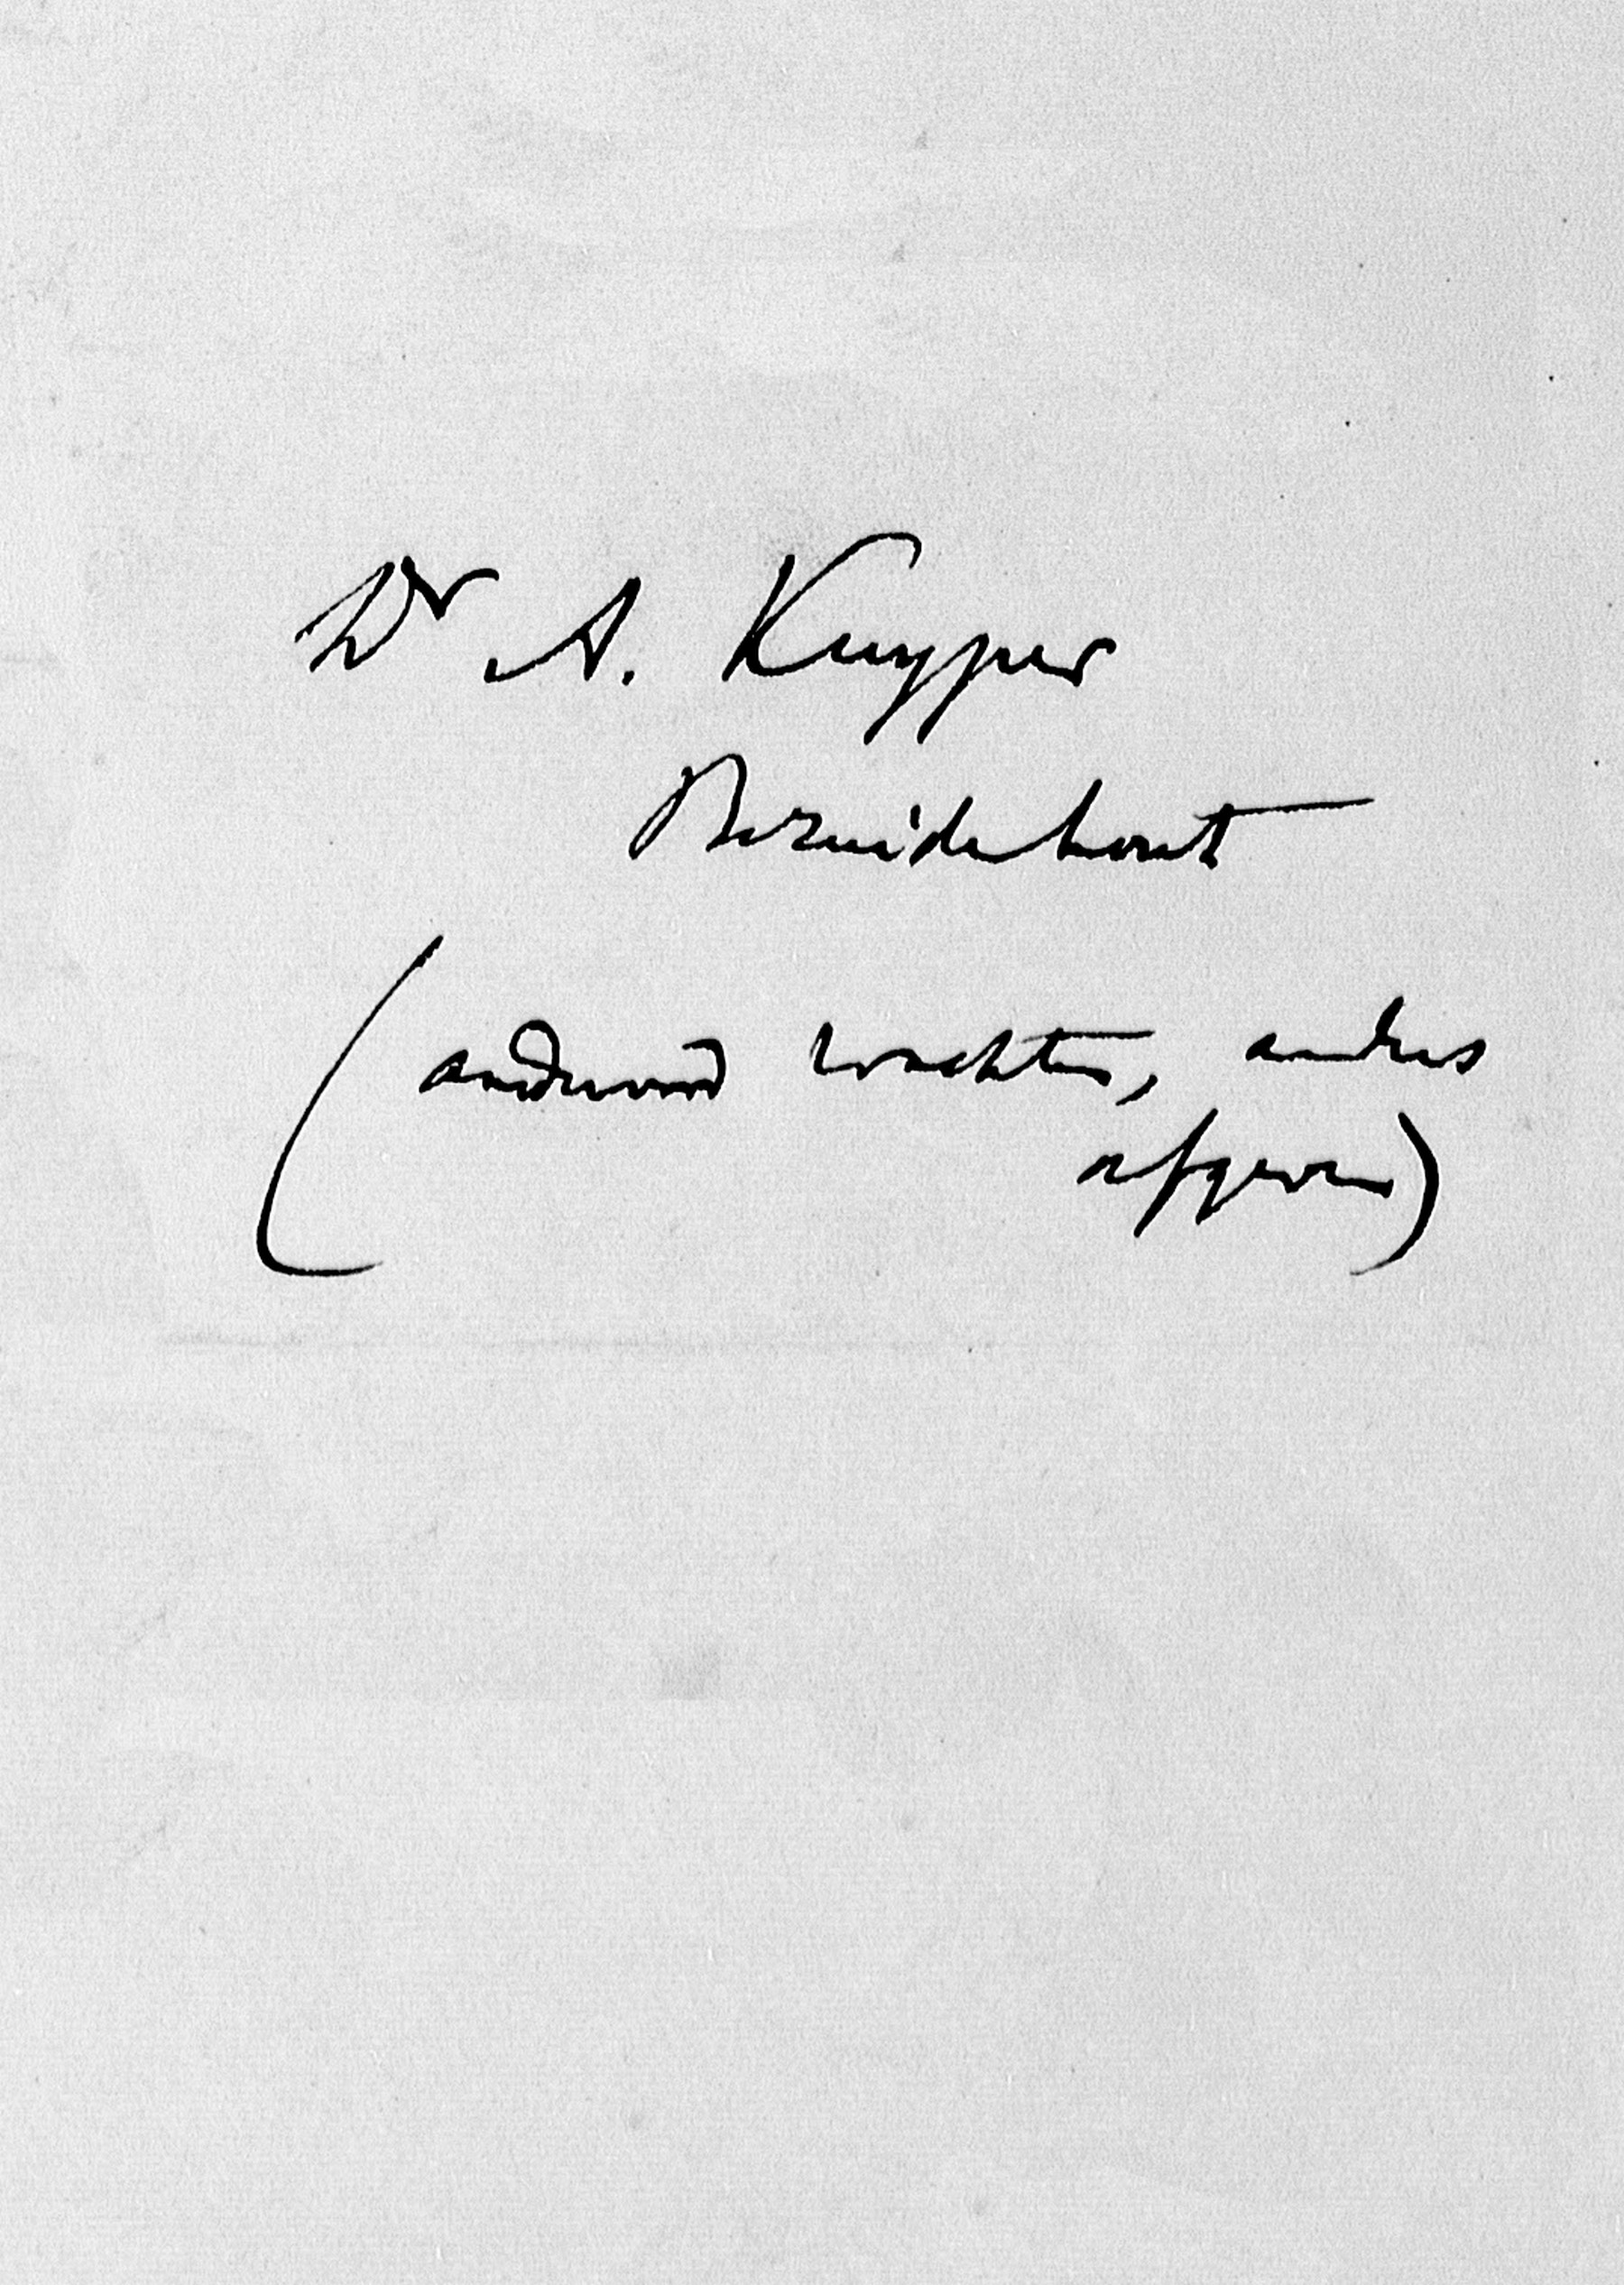 Dr A. Kuyper
Bezuidenhout
(antwoord wachten, anders
afgeven)